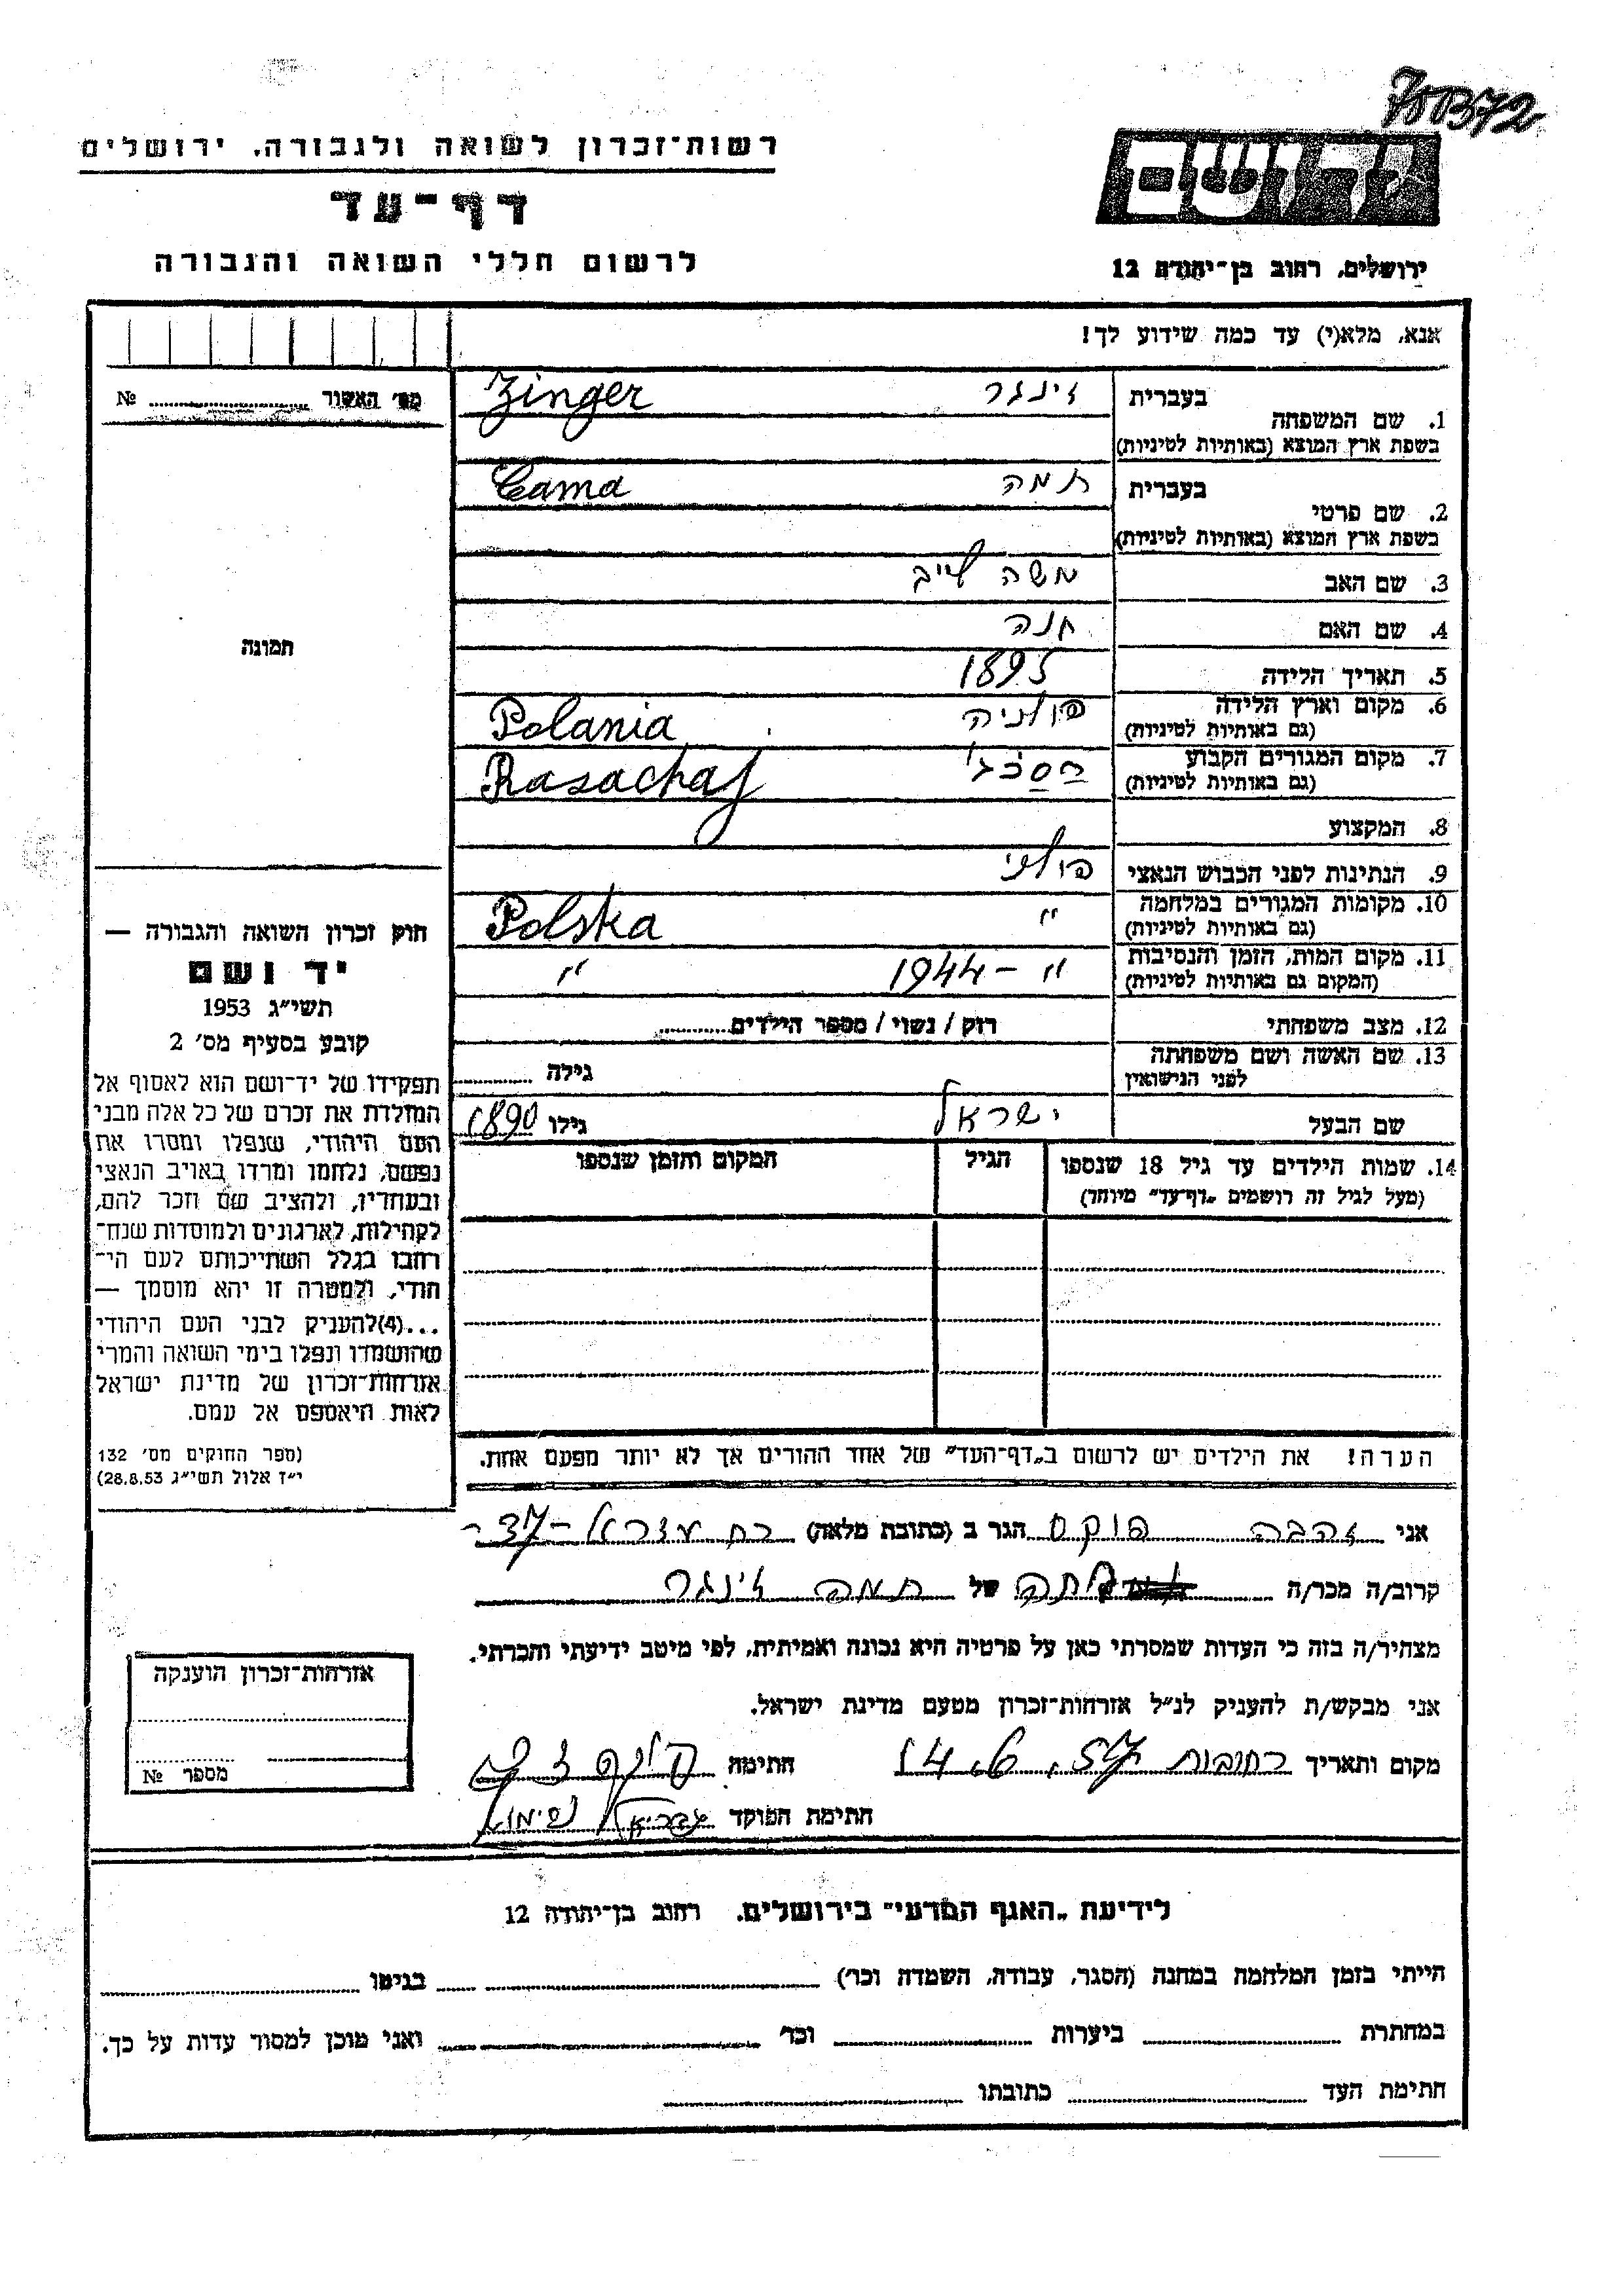 רשות־זכרון לשואה ולגבורה, ירושלים
דף־עד
לרשום חללי השואה והגבורה
יד ושם
ירושלים, רחוב בן־יהודה 12
אנא, מלא(י) עד כמה שידוע לך!
מס׳ האשור № ..........
1. שם המשפחה בעברית זינגר
בשפת ארץ המוצא (באותיות לטיניות) Zinger
2. שם פרטי בעברית תמה
בשפת ארץ המוצא (באותיות לטיניות) Cama
3. שם האב משה לייב
4. שם האם חנה
5. תאריך הלידה 1895
6. מקום וארץ הלידה (גם באותיות לטיניות) פולניה Polania
7. מקום המגורים הקבוע (גם באותיות לטיניות) Rasachaj
8. המקצוע
9. הנתינות לפני הכבוש הנאצי פולני
10. מקומות המגורים במלחמה (גם באותיות לטיניות) " Polska
11. מקום המות, הזמן והנסיבות (המקום גם באותיות לטיניות) " – 1944 "
12. מצב משפחתי רווק / נשוי / מספר הילדים..........
13. שם האשה ושם משפחתה לפני הנישואין גילה ..........
שם הבעל ישראל גילו 1890
14. שמות הילדים עד גיל 18 שנספו (מעל לגיל זה רושמים „דף־עד” מיוחד)
הגיל
המקום והזמן שנספו
הערה! את הילדים יש לרשום ב„דף־העד” של אחד ההורים אך לא יותר מפעם אחת.
תמונה
חוק זכרון השואה והגבורה —
יד ושם
תשי״ג 1953
קובע בסעיף מס׳ 2
תפקידו של יד־ושם הוא לאסוף אל
המולדת את זכרם של כל אלה מבני
העם היהודי, שנפלו ומסרו את
נפשם, נלחמו ומרדו באויב הנאצי
ובעוזריו, ולהציב שם וזכר להם,
לקהילות, לארגונים ולמוסדות שנח־
רבו בגלל השתייכותם לעם הי־
הודי, ולמטרה זו יהא מוסמך —
...(4)להעניק לבני העם היהודי
שהושמדו ונפלו בימי השואה והמרי
אזרחות־זכרון של מדינת ישראל
לאות היאספם אל עמם.
(ספר החוקים מס׳ 132
י״ז אלול תשי״ג 28.8.53)
אני זהבה פוקס הגר ב (כתובת מלאה) רח עזרא – 37
קרוב/ה מכר/ה של תמה זינגר
מצהיר/ה בזה כי העדות שמסרתי כאן על פרטיה היא נכונה ואמיתית, לפי מיטב ידיעתי והכרתי.
אני מבקש/ת להעניק לנ״ל אזרחות־זכרון מטעם מדינת ישראל.
מקום ותאריך רחובות 14.6.57 חתימה
חתימת הפוקד
אזרחות־זכרון הוענקה
מספר №
לידיעת „האגף המדעי” בירושלים, רחוב בן־יהודה 12
הייתי בזמן המלחמה במחנה (הסגר, עבודה, השמדה וכו׳) .......... בגיטו ..........
במחתרת .......... ביערות .......... וכו׳ .......... ואני מוכן למסור עדות על כך.
חתימת העד .......... כתובתו ..........